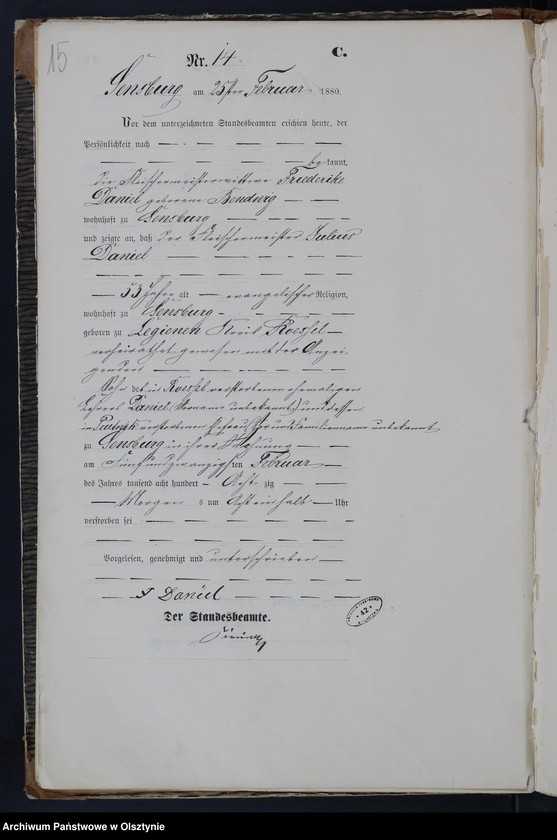 15
Nr. 14. C.
Sensburg am 25ten Februar 1880.
Vor dem unterzeichneten Standesbeamten erschien heute, der
Persönlichkeit nach
be kannt,
die Fleischermeisterwittwe Friederike
Daniel geborene
wohnhaft zu Sensburg
und zeigte an, daß der Fleischermeister Julius
Daniel
53 Jahre alt evangelischer Religion,
wohnhaft zu Sensburg
geboren zu Legienen Kreis Roessel
verheirathet gewesen mit der Anzei-
genden
Sohn des in Roessel verstorbenen ehemaligen
Lehrers Daniel (Vorname unbekannt) und dessen
in verstorbenen Ehefrau, Vor und Familienname unbekannt
zu Sensburg in ihrer Wohnung
am Fünfundzwanzigsten Februar
des Jahres tausend acht hundert Acht zig
Morgens um Acht einhalb Uhr
verstorben sei
Vorgelesen, genehmigt und unterschrieben
F Daniel
Der Standesbeamte.
42
Archiwum Państwowe w Olsztynie